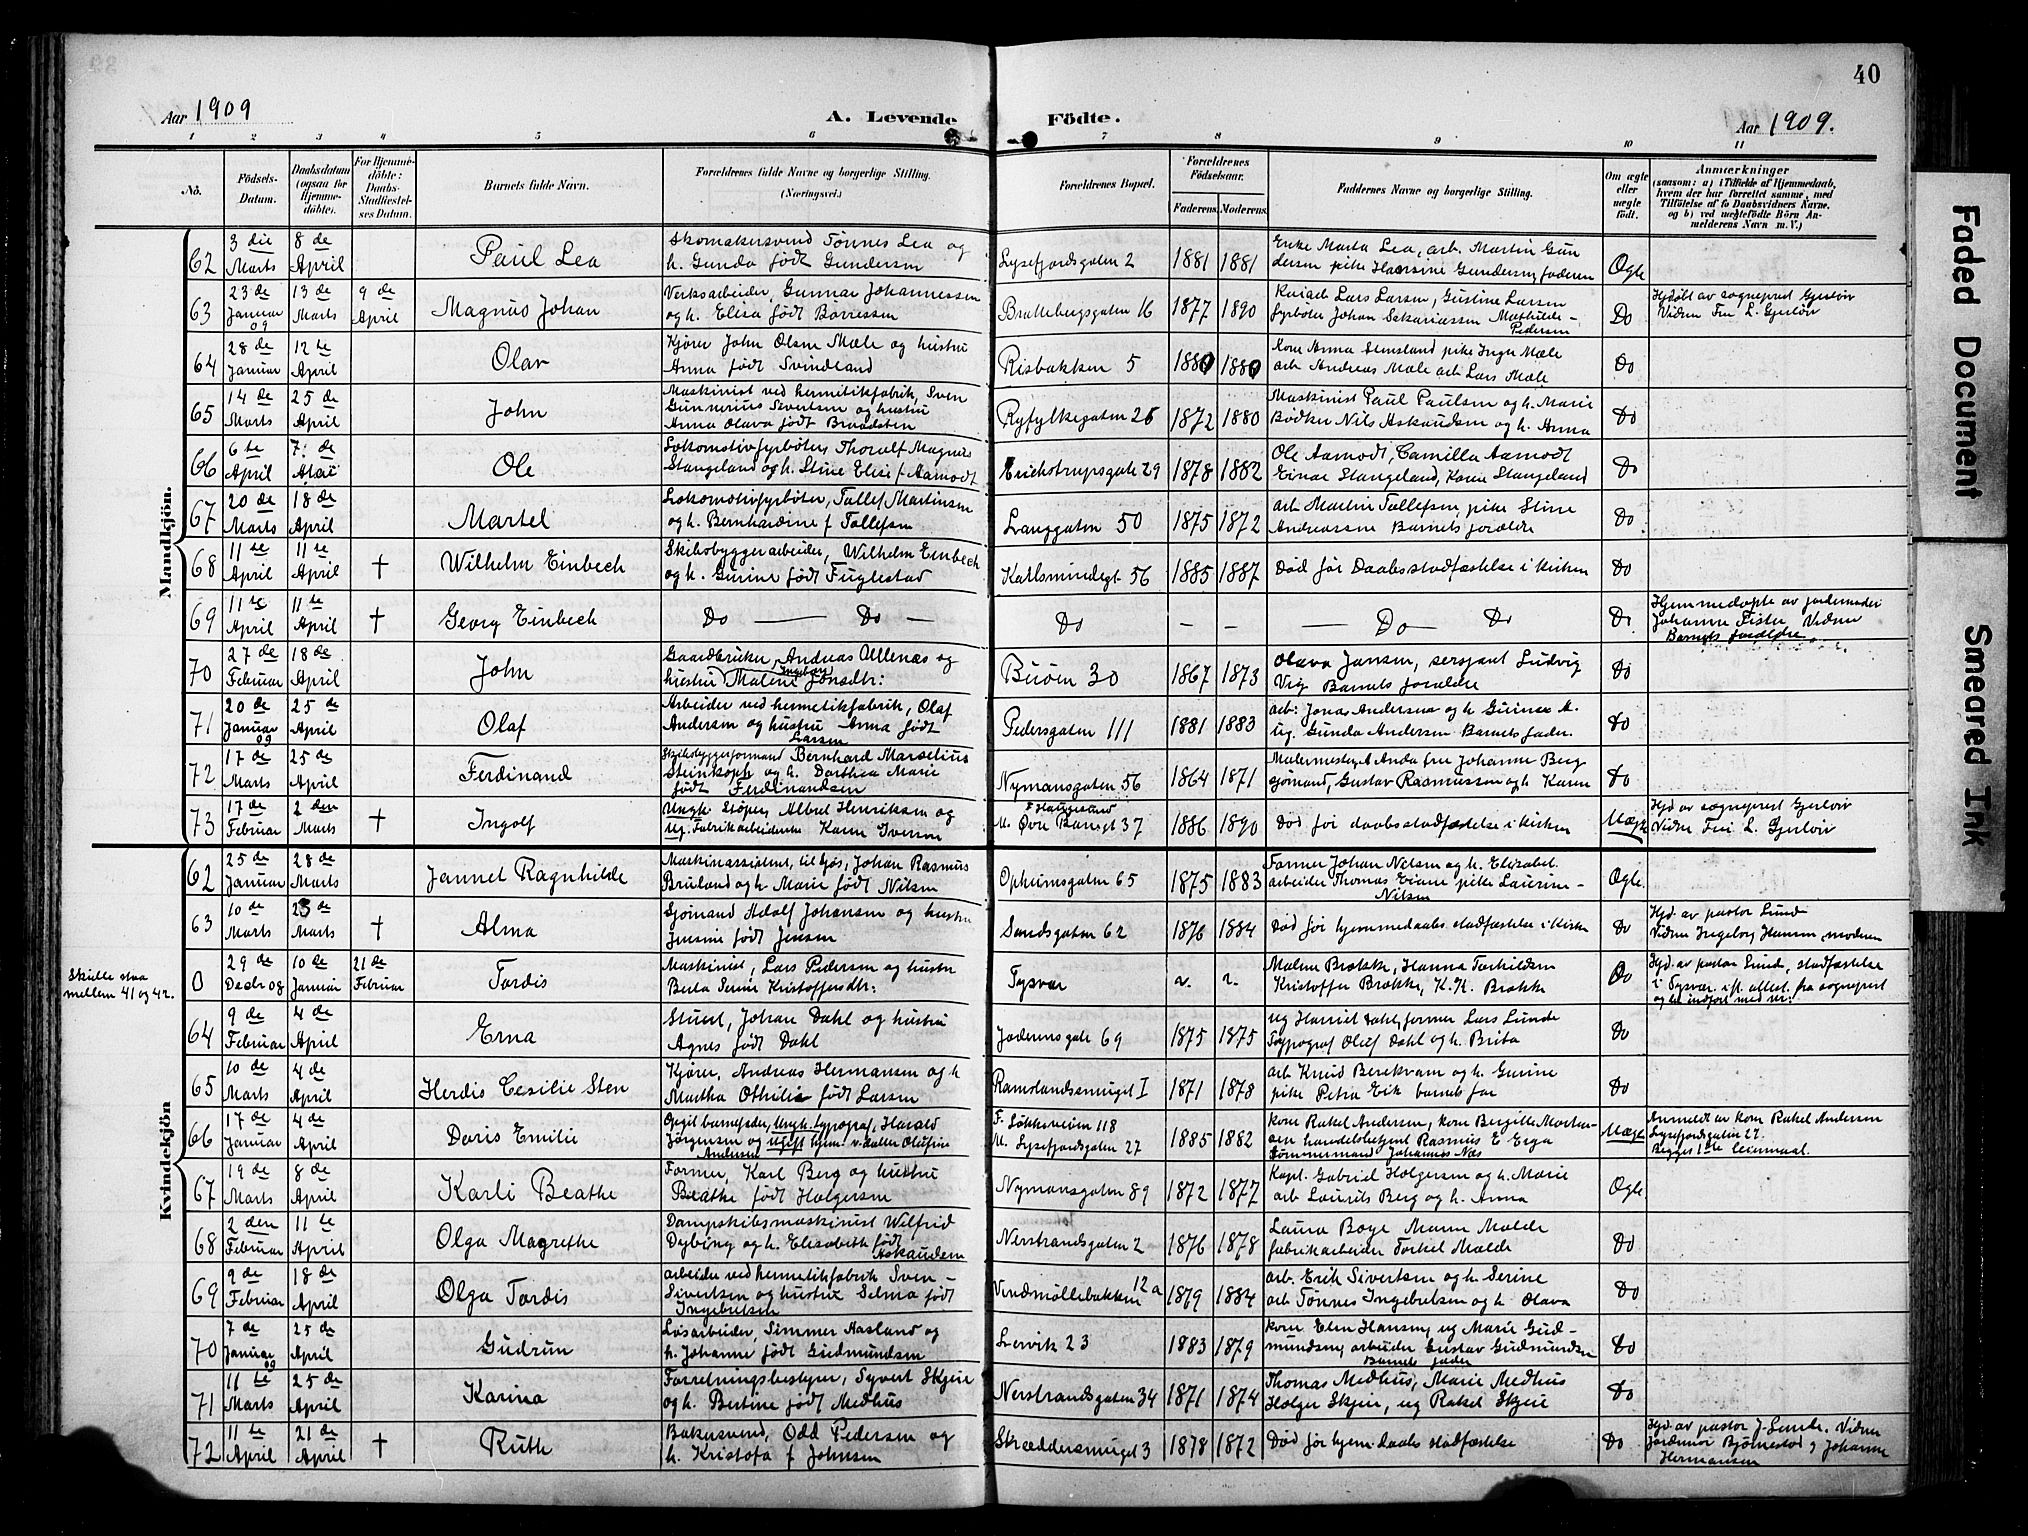 40
Aar 1909
A. Levende
Födte.
Aar 1909.
1 2 3 4 5 6 7 8 9 10 11
No.
Födsels-
Datum.
Daabsdatum
(ogsaa for
Hjemme-
döbte).
For Hjemme-
döbte:
Daabs-
Stadfæstel-
ses Datum.
Barnets fulde Navn.
Forældrenes fulde Navne og borgerlige Stilling.
(Næringsvei.)
Forældrenes Bopæl.
Forældrenes
Födselsaar.
Faderens. Moderens.
Faddernes Navne og borgerlige Stilling.
Om ægte
eller
uægte
födt.
Anmærkninger
(saasom: a) i Tilfælde af Hjemmedaab,
hvem der har forrettet samme, med
Tilföielse af to Daabsvidners Navne.
og b) ved uægtefödte Börn An-
melderens Navn m. V.)
Mandkjön.
62 3 die Marts 8 de April Paul Lea
Skomakersvend Tønnes Lea og
h. Gunda født Gundersen
Lysefjordsgaten 2 1881 1881
Enke Marta Lea, arb. Martin Gun
dersen pike Hansine Gundersen, faderen
Ogte
63 23 de Januar 09 13 de Marts 9 de April Magnus Johan
Verksarbeider, Gunnar Johannessen
og h. Elisa født Børressen
Brattebergsgaten 16 1877 1890
Lars Larsen, Gustine Larsen
fyrbøter Johan Sakariassen Mathilde
Pedersen
Do
Hjdøbt av sogneprest Gjerløv
Vidner Fru L. Gjerløv
64 28 de Januar 12 te April Olav
Kjører John Olsen Mæle og hustru
Anna født Svindland
Risbakken 5 1880 1880
Kone Anna Stensland pike Inger Mæle
arb Andreas Mæle arb Lars Mæle
Do
65 14 de Marts 25 de April John
Maskinist ved hermetikfabrik, Sven
Gunnerius Sivertsen og hustru
Anna Olava født Braadsten
Ryfylkegaten 26 1872 1880
Maskinist Paul Paulsen og h. Marie
Bødker Nils Askautsen og h. Anna
Do
66 6 te April 7: de Marti Ole
Lokomotivfyrbøter Thoralf Magnus
Stangeland og h. Stine Elise f Aamodt
Erichstrupsgate 29 1878 1882
Ole Aamodt, Camilla Aamodt
Einar Stangeland, Karen Stangeland
Do
67 20 de Marts 18 de April Martel
Lokomotivfyrbøter, Tollef Martinsen
og h. Bernhardine f Tollefsen
Langgaten 50 1875 1872
arb Martin Tollefsen, pike Stine
Andreassen Barnets forældre
Do
68 11 te April 11 te April † Wilhelm Einbech
Skibsbyggerarbeider, Wilhelm Einbech
og h. Gurine født Fuglestad
Karlsmindegt 56 1885 1887
Død før Daabsstadfæstelse i Kirken
Do
69 11 te April 11 te April † Georg Einbech
Do — Do —
Do — —
— Do — Do
Do
Hjemmedøpte av jordemoder
Johanne Fister, Vidner
Barnets forældre
70 27 de Februar 18 de April John
Gaardbruker Andreas Allenæs og
hustru Malene Ingeborg Jonsdtr:
Buøen 30 1867 1873
Olava Jansen, sersjant Ludvig
Vig Barnets forældre
Do
71 20 de Januar 09 25 de April Olaf
Arbeider ved hermetikfabrik, Olaf
Andersen og hustru Anna født
Larsen
Pedersgaten 111 1881 1883
arb: Jonas Andersen og h Gurine A.
ug. Gunda Andersen Barnets fader.
Do
72 17 de Marts 25 de April Ferdinand
Skibsbyggerformand Bernhard Marselius
Steinkopf og h. Dorthea Marie
født Ferdinandsen
Nymansgaten 56 1864 1871
Malermester Anda fru Johanne Berg
sjømand, Gustav Rasmussen og h Karen
Do
73 17 de Februar 2 den Marts † Ingolf
Ungk. Støper, Albret Henriksen og
ug. Fabrikarbeiderske Karen Iversen
F Haugesund
M. Øvre Bangt 37 1886 1890
Død før daabsstadfæstelse i Kirken
Uægte
Hjd av sogneprest Gjerløv
Vidner Fru L. Gjerløv
Kvindekjön
62 25 de Januar 28 de Marts Jannet Ragnhilde
Maskinassistent, til sjøs, Johan Rasmus
Bruland og h. Marie født Nilsen
Opheimsgaten 65 1875 1883
Former Johan Nilsen og h. Elizabet
arbeider Thomas Eiane pike Laurine
Nilsen
Ogte.
63 10 de Marts 23 de Marts † Alma
Sjømand Adolf Johansen og hustru
Jensine født Jensen
Sandsgaten 62 1876 1884
Død før hjemmedaabs stadfæstelse i Kirken
Do
Hjd. av pastor Lund
Vidner Ingeborg Hansen, moderen
Skulle staa
mellem 41 og 42.
0 29 de Decbr 08 10 de Januar 21 de Februar Tordis
Maskinist, Lars Pedersen og hustru
Berta Serine Kristoffersdtr:
Tysvær
Malene Brække, Hanna Torkildsen
Kristoffer Brække, K. K. Brække
Do
Hjd. av pastor Lund, stadfæstelse
i Tysvær. ifl. attest. fra sogneprest
64 9 de Februar 4 de April Erna
Stuert, Johan Dahl og hustru
Agnes født Dahl
Jæderensgate 69 1875 1875
ug Harriet Dahl, former Lars Lunde
Typograf Oluf Dahl og h. Brita
Do
65 10 de Marts 4 de April Herdis Cesilie Sten
Kjører, Andreas Hermansen og h
Martha Othilie født Larsen
Ramslandssmuget I 1871 1878
arb Knud Berekvam og h. Gurine
pike Petra Eik barnets far
Do
66 17 de Januar 4 de April Doris Emilie
Opgit barnefader, Ungk. typograf, Harald
Jørgensen og ugift hjem. v. datter Olufine
Andersen
F. Løkkeveien 118
M. Lysefjordsgaten 27 1885 1882
kone Rakel Andersen, kone Bergitte Morten-
sen handelsbetjent Rasmus E Erga
tømmermand Johannes Næs
Uægte
Anmeldt av kone Rakel Andersen
Lysefjordsgaten 27.
Begges 1ste leiermaal.
67 19 de Marts 8 de April Karli Beathe
Former, Karl Berg og hustru
Beathe født Holgersen
Nymansgaten 89 1872 1877
Kapt. Gabriel Holgersen og h. Marie
arb Laurits Berg og h. Anna
Ogte
68 2 den Februar 11 te April Olga Magrethe
Dampskibsmaskinist Wilfrid
Dybing og h. Elisabeth født
Askautsen
Nerstrandsgaten 2 1876 1878
Laura Boye Maren Malde
fabrikarbeider Torkel Malde
Do
69 9 de Februar 18 de April Olga Tordis
arbeider ved hermetikfabrik Sven
Sivertsen og hustru Selma født
Ingebretsen
Vindmøllebakken 12 a 1879 1884
arb. Erik Sivertsen og h. Serine
arb Tønnes Ingebretsen og h. Olava
Do
70 7 de Januar 09 25 de April Gudrun
Løsarbeider, Simmer Aasland og
h. Johanne født Gudmundsen
Lervik 23 1883 1879
kone Elen Hansen, ug Marie Gud-
mundsen, arbeider Gustav Gudmundsen
Barnets fader
Do
71 11 te Marts 25 de April Karina
Forretningsbestyrer, Syvert Skjeie
og h. Bertine født Medhus
Nerstrandsgaten 34 1871 1874
Thomas Medhus, Marie Medhus
Holger Skjeie, ug Rakel Skjeie
Do
72 11 te April 21 de April † Ruth
Bakersvend, Odd Pedersen og
h. Kristofa f Johnsen
Skræddersmuget 3 1878 1872
Død før hjem. daabs stadfæstelse
Do
Hjd. av pastor J. Lunde. Vidner
Jordemor Bjørnestad og Johanne
Hermansen
Faded Document
Smeared Ink